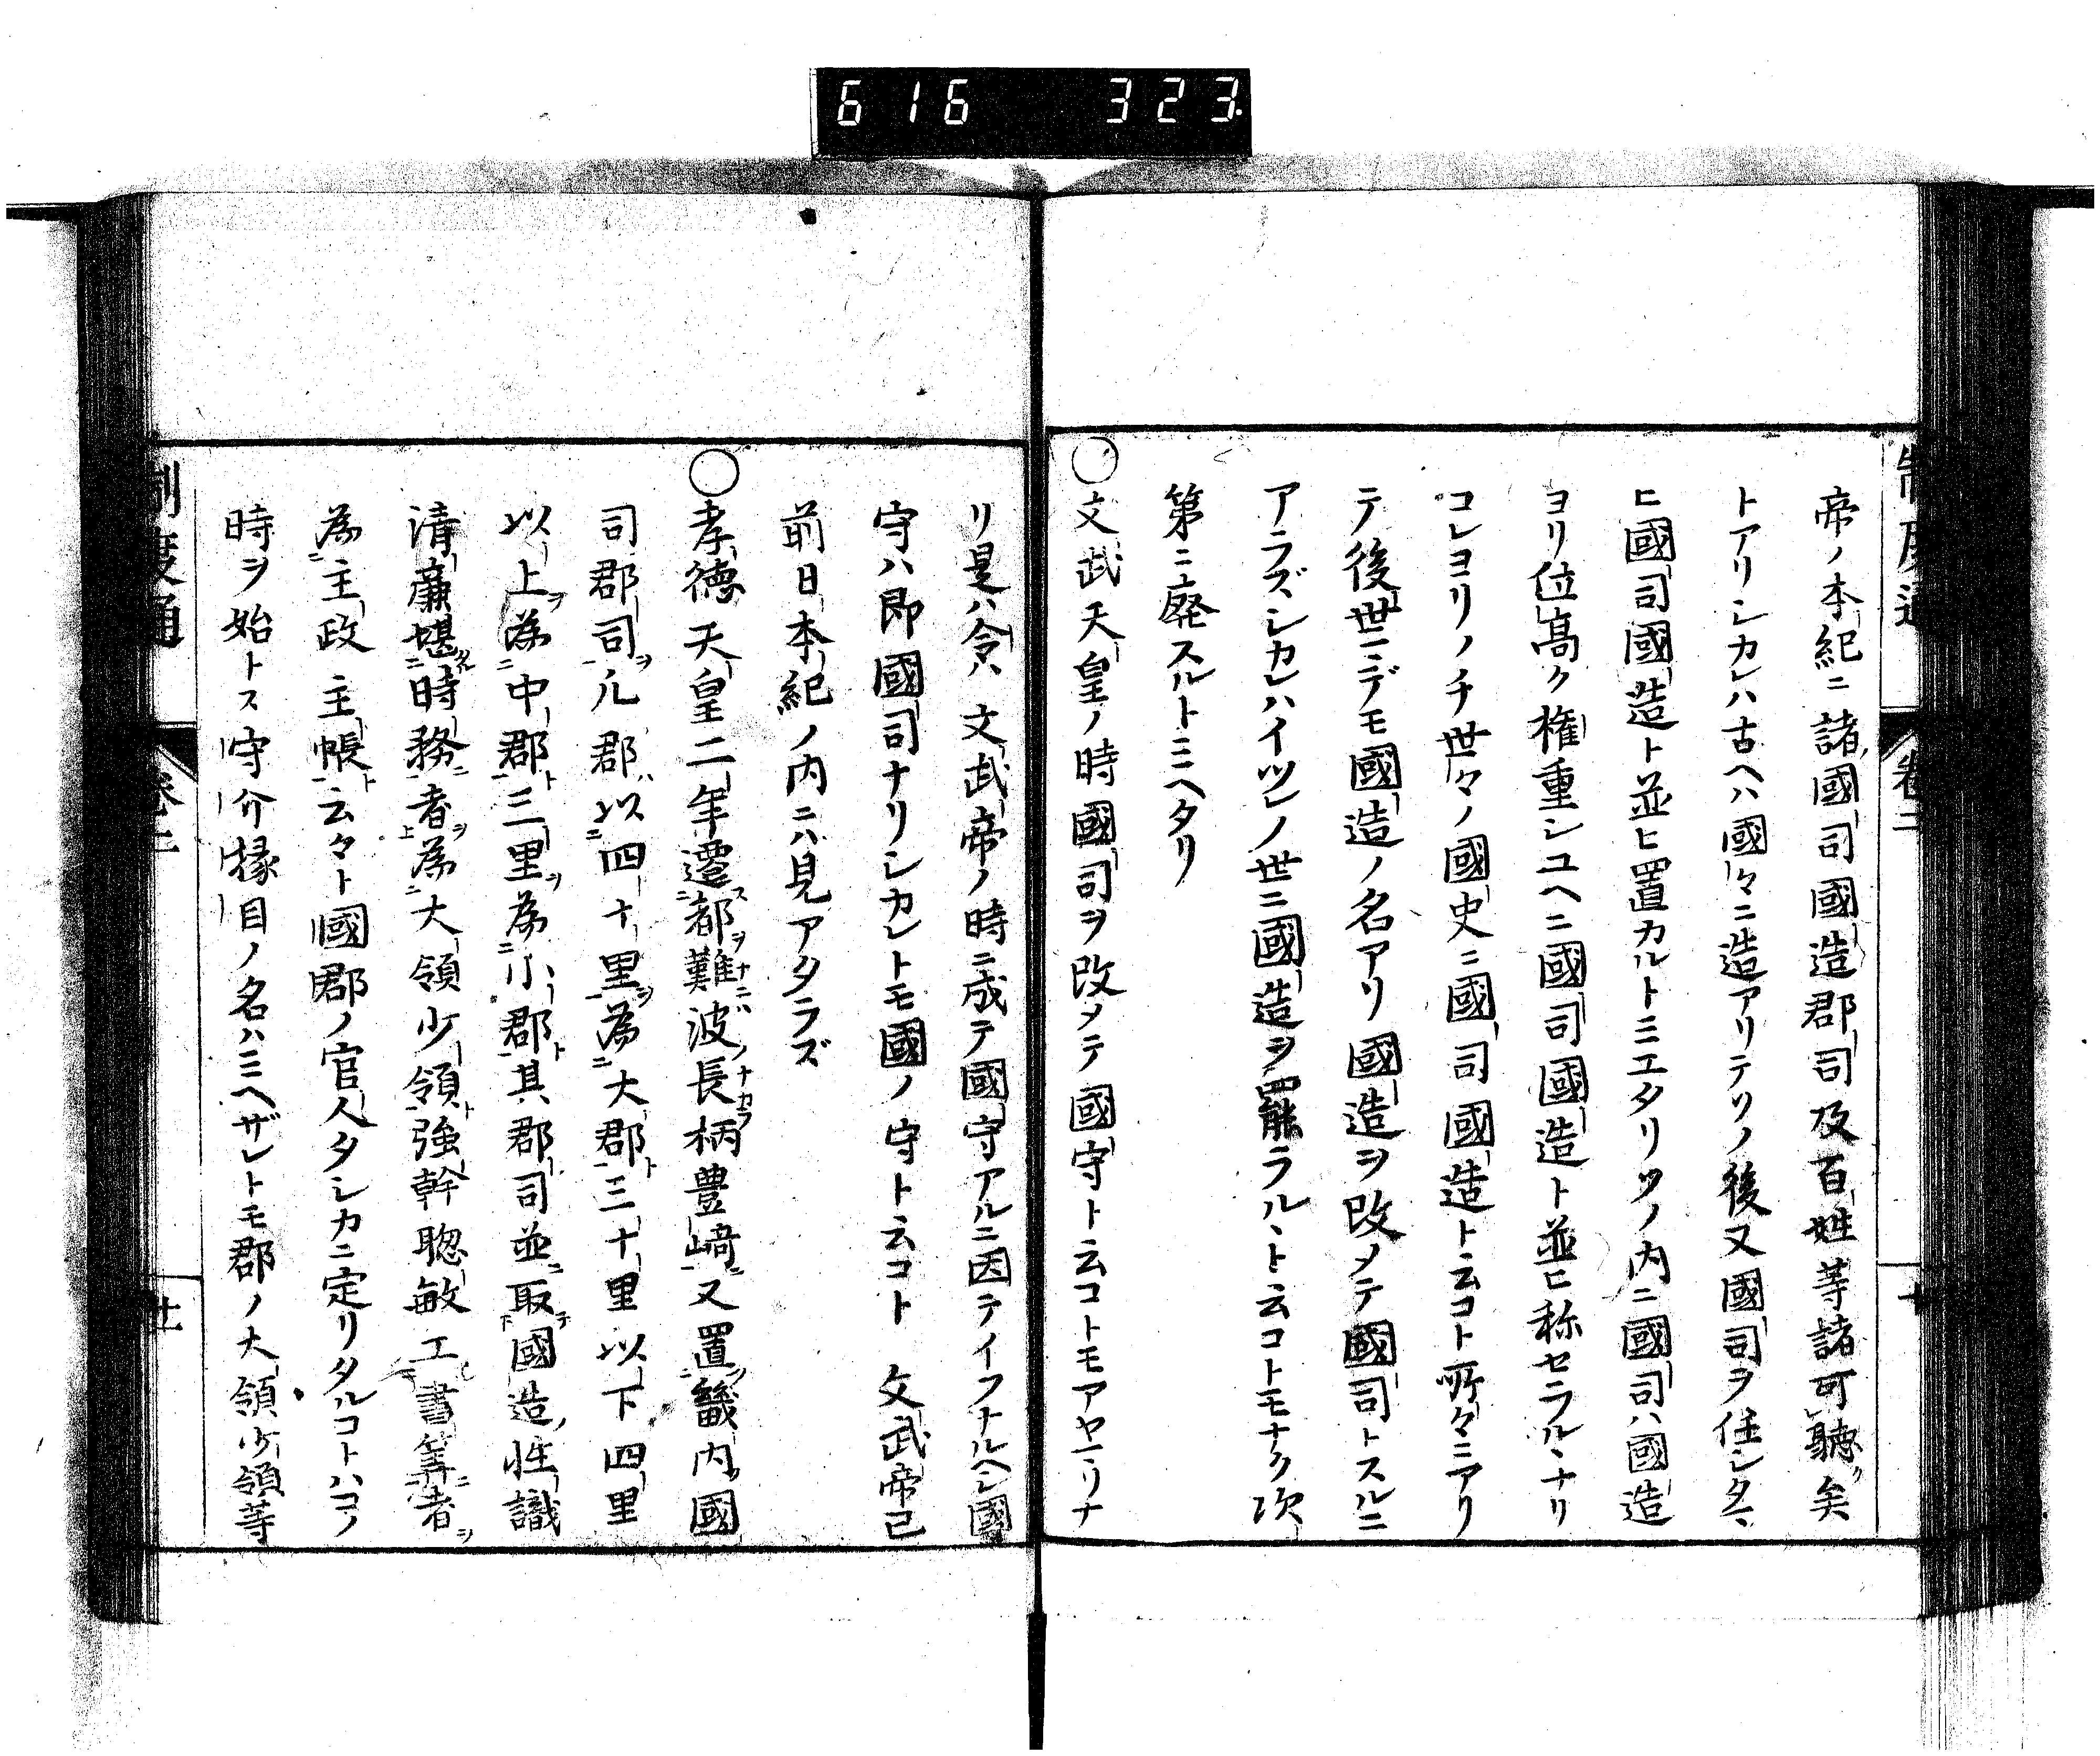 616 323
制度通 卷二 十
帝ノ本紀ニ諸國司國造郡司及百姓等諸可聽矣
トアリシカレハ古ヘハ國々ニ造アリテソノ後又國司ヲ任シタマ
ヒ國司國造ト並ヒ置カルトミエタリソノ内ニ國司ハ國造
ヨリ位高ク権重シユヘニ國司國造ト並ヒ称セラルヽナリ
コレヨリノチ世々ノ國史ニ國司國造ト云コト所々ニアリ
テ後世マデモ國造ノ名アリ國造ヲ改メテ國司トスルニ
アラズシカレハイツレノ世ニ國造ヲ罷ラルヽト云コトモナク次
第ニ廃スルトミヘタリ
○文武天皇ノ時國司ヲ改メテ國守ト云コトモアヤマリナ
リ是ハ令ハ文武帝ノ時ニ成テ國守アルニ因テイフナルヘシ國
守ハ即國司ナリシカレトモ國ノ守ト云コト文武帝已
前日本紀ノ内ニハ見アタラズ
○孝德天皇二年遷ス都ヲ難波ナニハノ長柄ナカラ豊﨑ニ又置ク畿内國
司郡司ヲ凡郡ハ以四十里ヲ為大郡ト三十里以下四里
以上ヲ為中郡ト三里ヲ為小郡ト其郡司並取テ國造ノ性識
清廉堪タル時務ニ者ヲ為大領少領ト強幹聡敏工書筭ニ者ヲ
為主政主帳ト云々ト國郡ノ官人タシカニ定リタルコトハコノ
時ヲ始トス守介掾目ノ名ハミヘザレトモ郡ノ大領少領等
制度通 卷二 十一